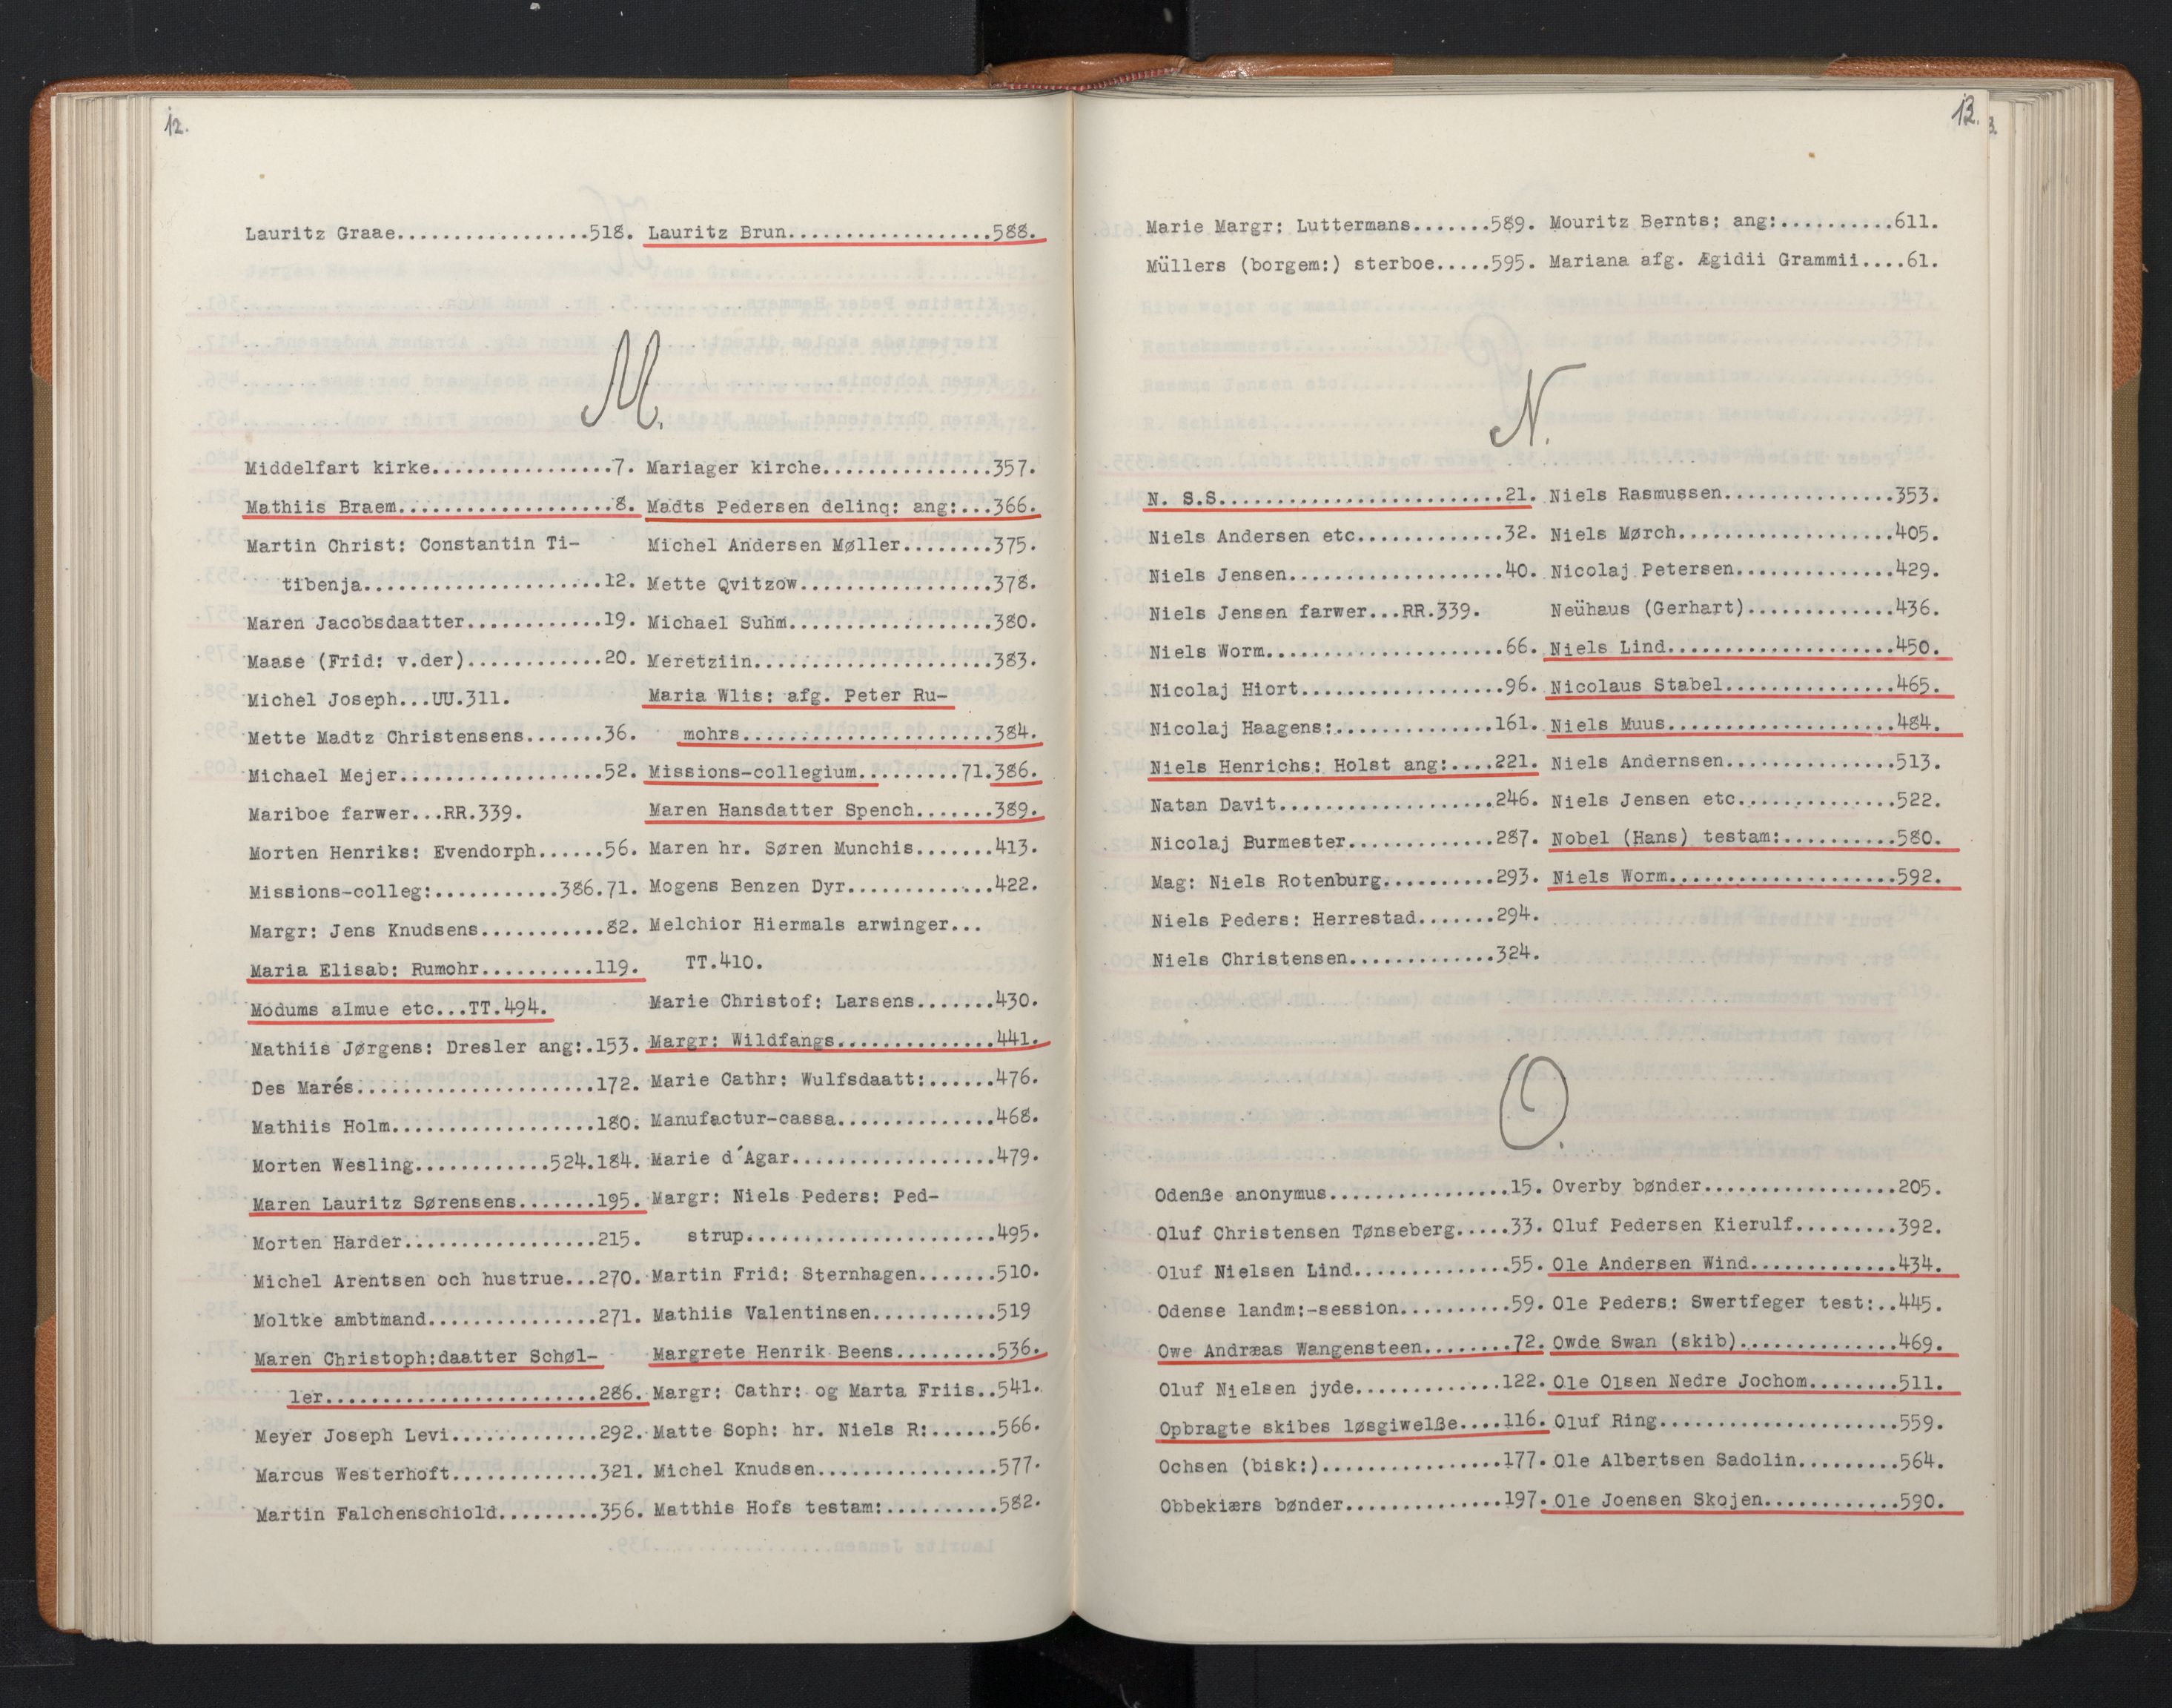 12.
Lauritz Graae.................518.
Lauritz Brun..................588.
M.
Middelfart kirke................7.
Mathiis Braem...................8.
Martin Christ: Constantin Ti-
tibenja.....................12.
Maren Jacobsdaatter............19.
Maase (Frid: v.der)............20.
Michel Joseph...UU.311.
Mette Madtz Christensens.......36.
Michael Mejer..................52.
Mariboe farwer...RR.339.
Morten Henriks: Evendorph......56.
Missions-colleg:...........386.71.
Margr: Jens Knudsens...........82.
Maria Elisab: Rumohr..........119.
Modums almue etc...TT.494.
Mathiis Jørgens: Dresler ang:.153.
Des Marés.....................172.
Mathiis Holm..................180.
Morten Wesling............524.184.
Maren Lauritz Sørensens.......195.
Morten Harder.................215.
Michel Arentsen och hustrue...270.
Moltke ambtmand...............271.
Maren Christoph:daatter Schøl-
ler........................286.
Meyer Joseph Levi.............292.
Marcus Westerhoft.............321.
Martin Falchenschiold.........356.
Mariager kirche...............357.
Madts Pedersen delinq: ang:...366.
Michel Andersen Møller........375.
Mette Qvitzow.................378.
Michael Suhm..................380.
Meretziin.....................383.
Maria Wlis: afg. Peter Ru-
mohrs......................384.
Missions-collegium.........71.386.
Maren Hansdatter Spench.......389.
Maren hr. Søren Munchis.......413.
Mogens Benzen Dyr.............422.
Melchior Hiermals arwinger...
TT.410.
Marie Christof: Larsens.......430.
Margr: Wildfangs..............441.
Marie Cathr: Wulfsdaatt:......476.
Manufactur-cassa..............468.
Marie d´Agar..................479.
Margr: Niels Peders: Ped-
strup......................495.
Martin Frid: Sternhagen.......510.
Mathiis Valentinsen...........519
Margrete Henrik Beens.........536.
Margr: Cathr: og Marta Friis..541.
Matte Soph: hr. Niels R:......566.
Michel Knudsen................577.
Matthis Hofs testam:..........582.
13.
Marie Margr: Luttermans.......589.
Müllers (borgem:) sterboe.....595.
Mouritz Bernts: ang:..........611.
Mariana afg. Ægidii Grammii....61.
N.
N. S.S.........................21.
Niels Andersen etc.............32.
Niels Jensen...................40.
Niels Jensen farwer...RR.339.
Niels Worm.....................66.
Nicolaj Hiort..................96.
Nicolaj Haagens:..............161.
Niels Henrichs: Holst ang:....221.
Natan Davit...................246.
Nicolaj Burmester.............287.
Mag: Niels Rotenburg..........293.
Niels Peders: Herrestad.......294.
Niels Christensen.............324.
Niels Rasmussen...............353.
Niels Mørch...................405.
Nicolaj Petersen..............429.
Neühaus (Gerhart).............436.
Niels Lind....................450.
Nicolaus Stabel...............465.
Niels Muus....................484.
Niels Andernsen...............513.
Niels Jensen etc..............522.
Nobel (Hans) testam:..........580.
Niels Worm....................592.
O.
Odenße anonymus................15.
Oluf Christensen Tønseberg.....33.
Oluf Nielsen Lind..............55.
Odense landm:-session..........59.
Owe Andræas Wangensteen........72.
Oluf Nielsen jyde.............122.
Opbragte skibes løsgiwelße....116.
Ochsen (bisk:)................177.
Obbekiærs bønder..............197.
Overby bønder.................205.
Oluf Pedersen Kierulf.........392.
Ole Andersen Wind.............434.
Ole Peders: Swertfeger test:..445.
Owde Swan (skib)..............469.
Ole Olsen Nedre Jochom........511.
Oluf Ring.....................559.
Ole Albertsen Sadolin.........564.
Ole Joensen Skojen............590.